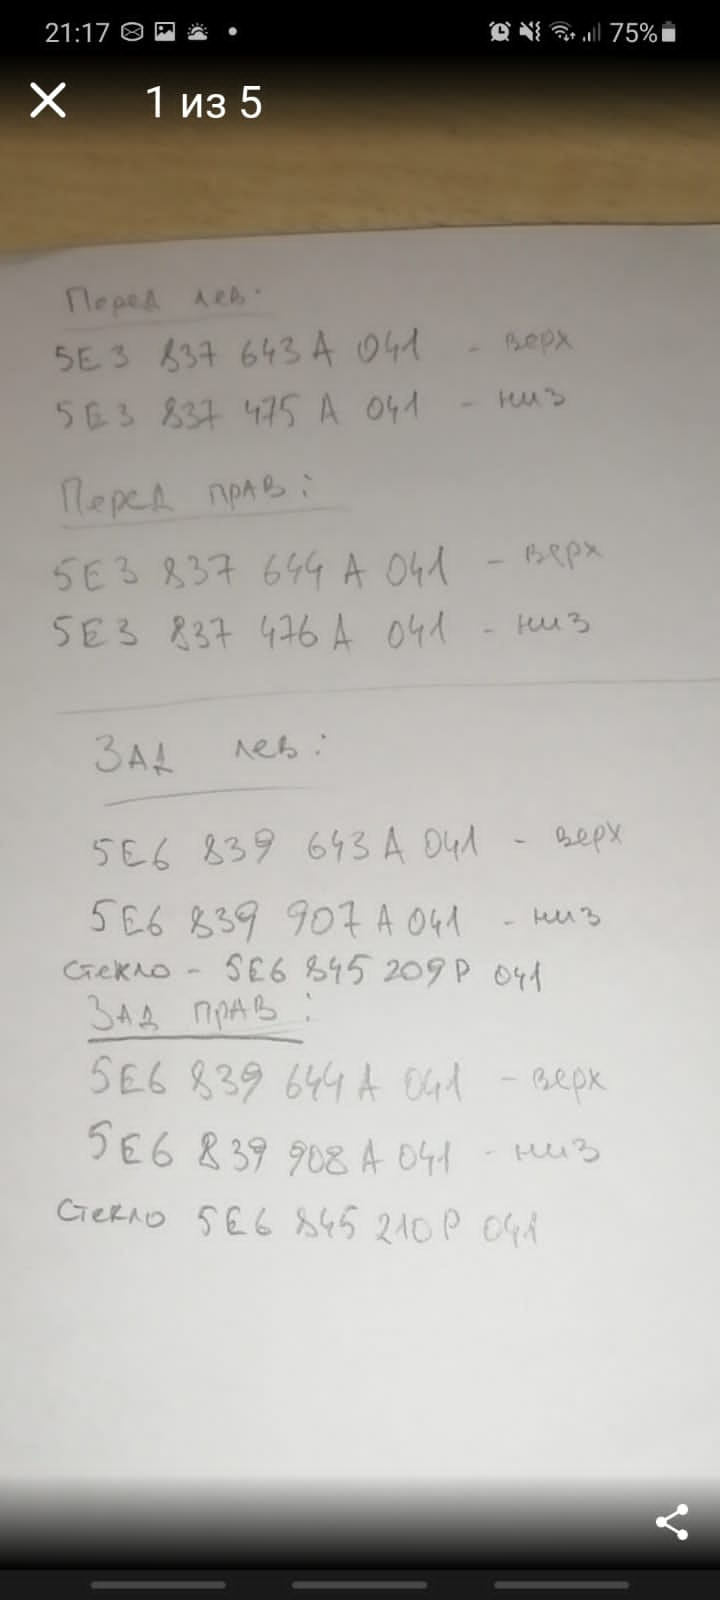 21:17 75%
1 из 5
Перед лев.
5E3 837 643 A 041 - верх
5E3 837 475 A 041 - низ
Перед прав:
5E3 837 644 A 041 - верх
5E3 837 476 A 041 - низ
Зад лев:
5E6 839 643 A 041 - верх
5E6 839 907 A 041 - низ
Стекло - 5E6 845 209 P 041
Зад прав:
5E6 839 644 A 041 - верх
5E6 839 908 A 041 - низ
Стекло 5E6 845 210 P 041